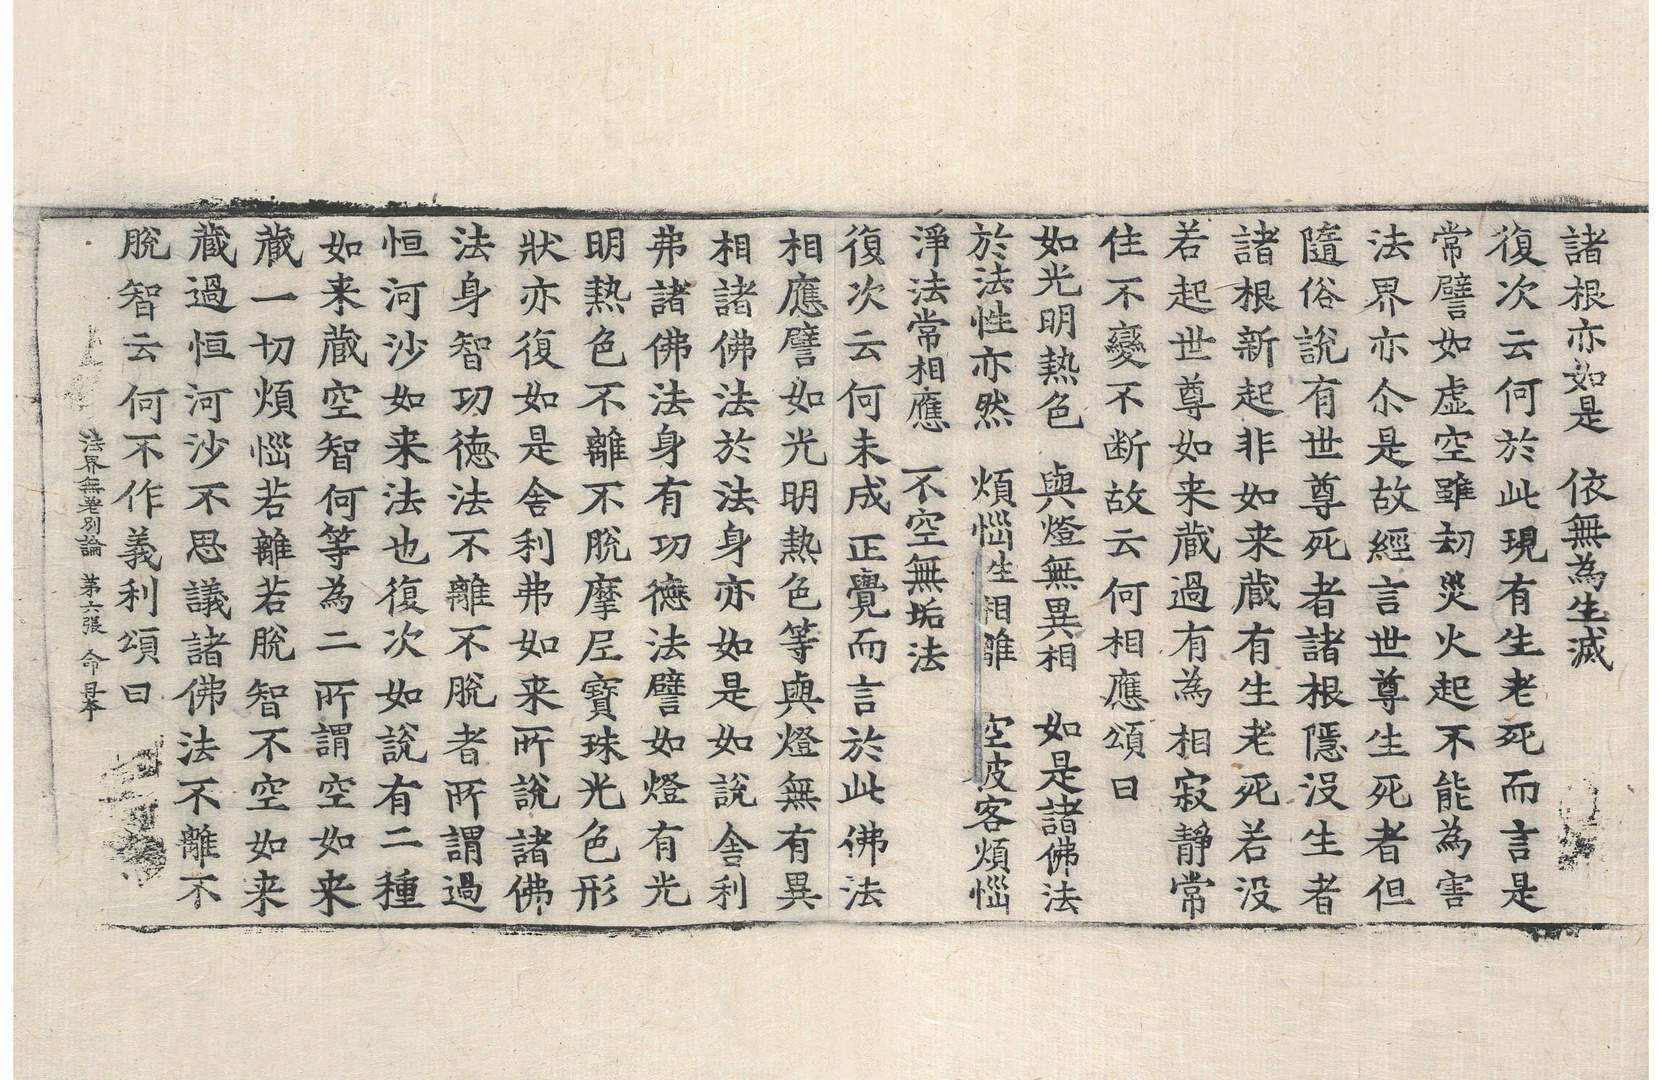 諸根亦如是　依無為生滅
復次云何於此現有生老死而言是
常譬如虚空雖劫災火起不能為害
法界亦尒是故經言世尊生死者但
隨俗說有世尊死者諸根隱没生者
諸根新起非如来蔵有生老死若没
若起世尊如来蔵過有為相寂靜常
住不變不断故云何相應頌曰
如光明熱色　與燈無異相　如是諸佛法
於法性亦然　煩惱生相離　空彼客煩惱
淨法常相應　不空無垢法
復次云何未成正覺而言於此佛法
相應譬如光明熱色等與燈無有異
相諸佛法於法身亦如是如說舎利
弗諸佛法身有功德法譬如燈有光
明熱色不離不脫摩尼寶珠光色形
狀亦復如是舎利弗如来所說諸佛
法身智功德法不離不脫者所謂過
恒河沙如来法也復次如說有二種
如来蔵空智何等為二所謂空如来
蔵一切煩惱若離若脫智不空如来
蔵過恒河沙不思議諸佛法不離不
脫智云何不作義利頌曰
法界無差別論　第六張　命